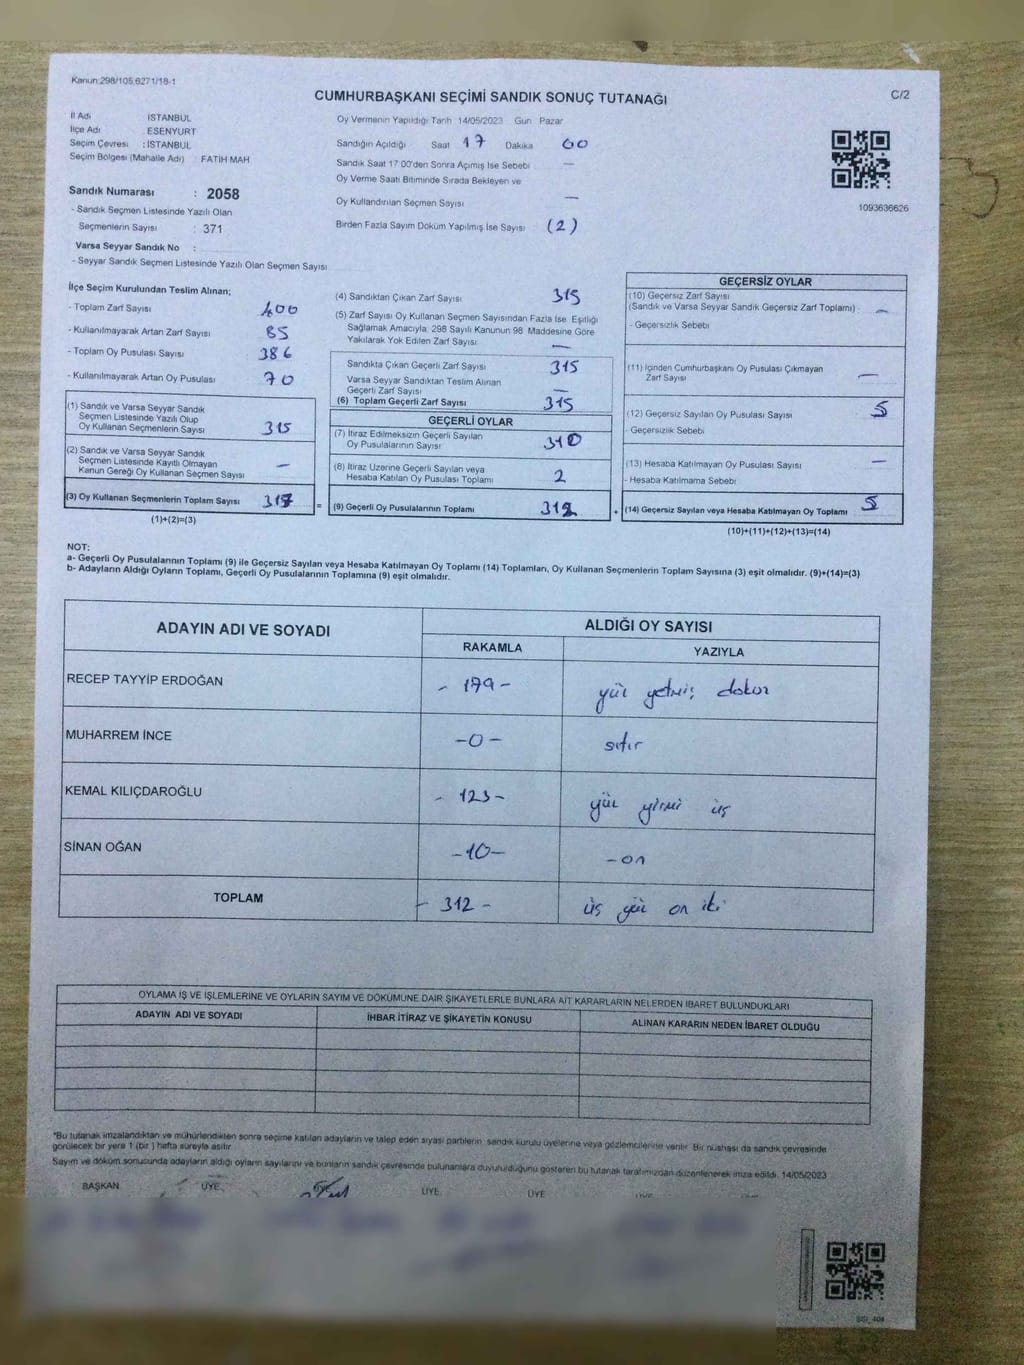 Kanun:298/105,6271/18-1
CUMHURBAŞKANI SEÇİMİ SANDIK SONUÇ TUTANAĞI
C/2
İl Adı : İSTANBUL
İlçe Adı : ESENYURT
Seçim Çevresi : İSTANBUL
Seçim Bölgesi (Mahalle Adı) FATİH MAH
Sandık Numarası : 2058
- Sandık Seçmen Listesinde Yazılı Olan
Seçmenlerin Sayısı : 371
Varsa Seyyar Sandık No :
- Seyyar Sandık Seçmen Listesinde Yazılı Olan Seçmen Sayısı
Oy Vermenin Yapıldığı Tarih 14/05/2023 Gün Pazar
Sandığın Açıldığı Saat 17 Dakika 00
Sandık Saat 17:00'den Sonra Açımış İse Sebebi —
Oy Verme Saati Bitiminde Sırada Bekleyen ve
Oy Kullandırılan Seçmen Sayısı —
Birden Fazla Sayım Döküm Yapılmış İse Sayısı (2)
1093636626
İlçe Seçim Kurulundan Teslim Alınan;
- Toplam Zarf Sayısı 400
- Kullanılmayarak Artan Zarf Sayısı 85
- Toplam Oy Pusulası Sayısı 386
- Kullanılmayarak Artan Oy Pusulası 70
(1) Sandık ve Varsa Seyyar Sandık
Seçmen Listesinde Yazılı Olup
Oy Kullanan Seçmenlerin Sayısı 315
(2) Sandık ve Varsa Seyyar Sandık
Seçmen Listesinde Kayıtlı Olmayan
Kanun Gereği Oy Kullanan Seçmen Sayısı —
(3) Oy Kullanan Seçmenlerin Toplam Sayısı 317 =
(1)+(2)=(3)
(4) Sandıktan Çıkan Zarf Sayısı 315
(5) Zarf Sayısı Oy Kullanan Seçmen Sayısından Fazla İse, Eşitliği
Sağlamak Amacıyla, 298 Sayılı Kanunun 98. Maddesine Göre
Yakılarak Yok Edilen Zarf Sayısı —
Sandıkta Çıkan Geçerli Zarf Sayısı 315
Varsa Seyyar Sandıktan Teslim Alınan
Geçerli Zarf Sayısı —
(6) Toplam Geçerli Zarf Sayısı 315
GEÇERLİ OYLAR
(7) İtiraz Edilmeksizin Geçerli Sayılan
Oy Pusulalarının Sayısı 310
(8) İtiraz Üzerine Geçerli Sayılan veya
Hesaba Katılan Oy Pusulası Toplamı 2
(9) Geçerli Oy Pusulalarının Toplamı 312 +
GEÇERSİZ OYLAR
(10) Geçersiz Zarf Sayısı
(Sandık ve Varsa Seyyar Sandık Geçersiz Zarf Toplamı) : —
- Geçersizlik Sebebi
(11) İçinden Cumhurbaşkanı Oy Pusulası Çıkmayan
Zarf Sayısı —
(12) Geçersiz Sayılan Oy Pusulası Sayısı 5
- Geçersizlik Sebebi
(13) Hesaba Katılmayan Oy Pusulası Sayısı —
- Hesaba Katılmama Sebebi
(14) Geçersiz Sayılan veya Hesaba Katılmayan Oy Toplamı 5
(10)+(11)+(12)+(13)=(14)
NOT:
a- Geçerli Oy Pusulalarının Toplamı (9) ile Geçersiz Sayılan veya Hesaba Katılmayan Oy Toplamı (14) Toplamları, Oy Kullanan Seçmenlerin Toplam Sayısına (3) eşit olmalıdır. (9)+(14)=(3)
b- Adayların Aldığı Oyların Toplamı, Geçerli Oy Pusulalarının Toplamına (9) eşit olmalıdır.
ADAYIN ADI VE SOYADI
ALDIĞI OY SAYISI
RAKAMLA YAZIYLA
RECEP TAYYİP ERDOĞAN - 179 - yüz yetmiş dokuz
MUHARREM İNCE -0- sıfır
KEMAL KILIÇDAROĞLU - 123- yüz yirmi üç
SİNAN OĞAN -10- -on
TOPLAM - 312 - üç yüz on iki
OYLAMA İŞ VE İŞLEMLERİNE VE OYLARIN SAYIM VE DÖKÜMÜNE DAİR ŞİKAYETLERLE BUNLARA AİT KARARLARIN NELERDEN İBARET BULUNDUKLARI
ADAYIN ADI VE SOYADI İHBAR İTİRAZ VE ŞİKAYETİN KONUSU ALINAN KARARIN NEDEN İBARET OLDUĞU
*Bu tutanak imzalandıktan ve mühürlendikten sonra seçime katılan adayların ve talep eden siyasi partilerin sandık kurulu üyelerine veya gözlemcilerine verilir. Bir nüshası da sandık çevresinde
görülecek bir yere 1 (bir) hafta süreyle asılır.
Sayım ve döküm sonucunda adayların aldığı oyların sayılarını ve bunların sandık çevresinde bulunanlara duyurulduğunu gösteren bu tutanak tarafımızdan düzenlenerek imza edildi. 14/05/2023
BAŞKAN ÜYE ÜYE ÜYE